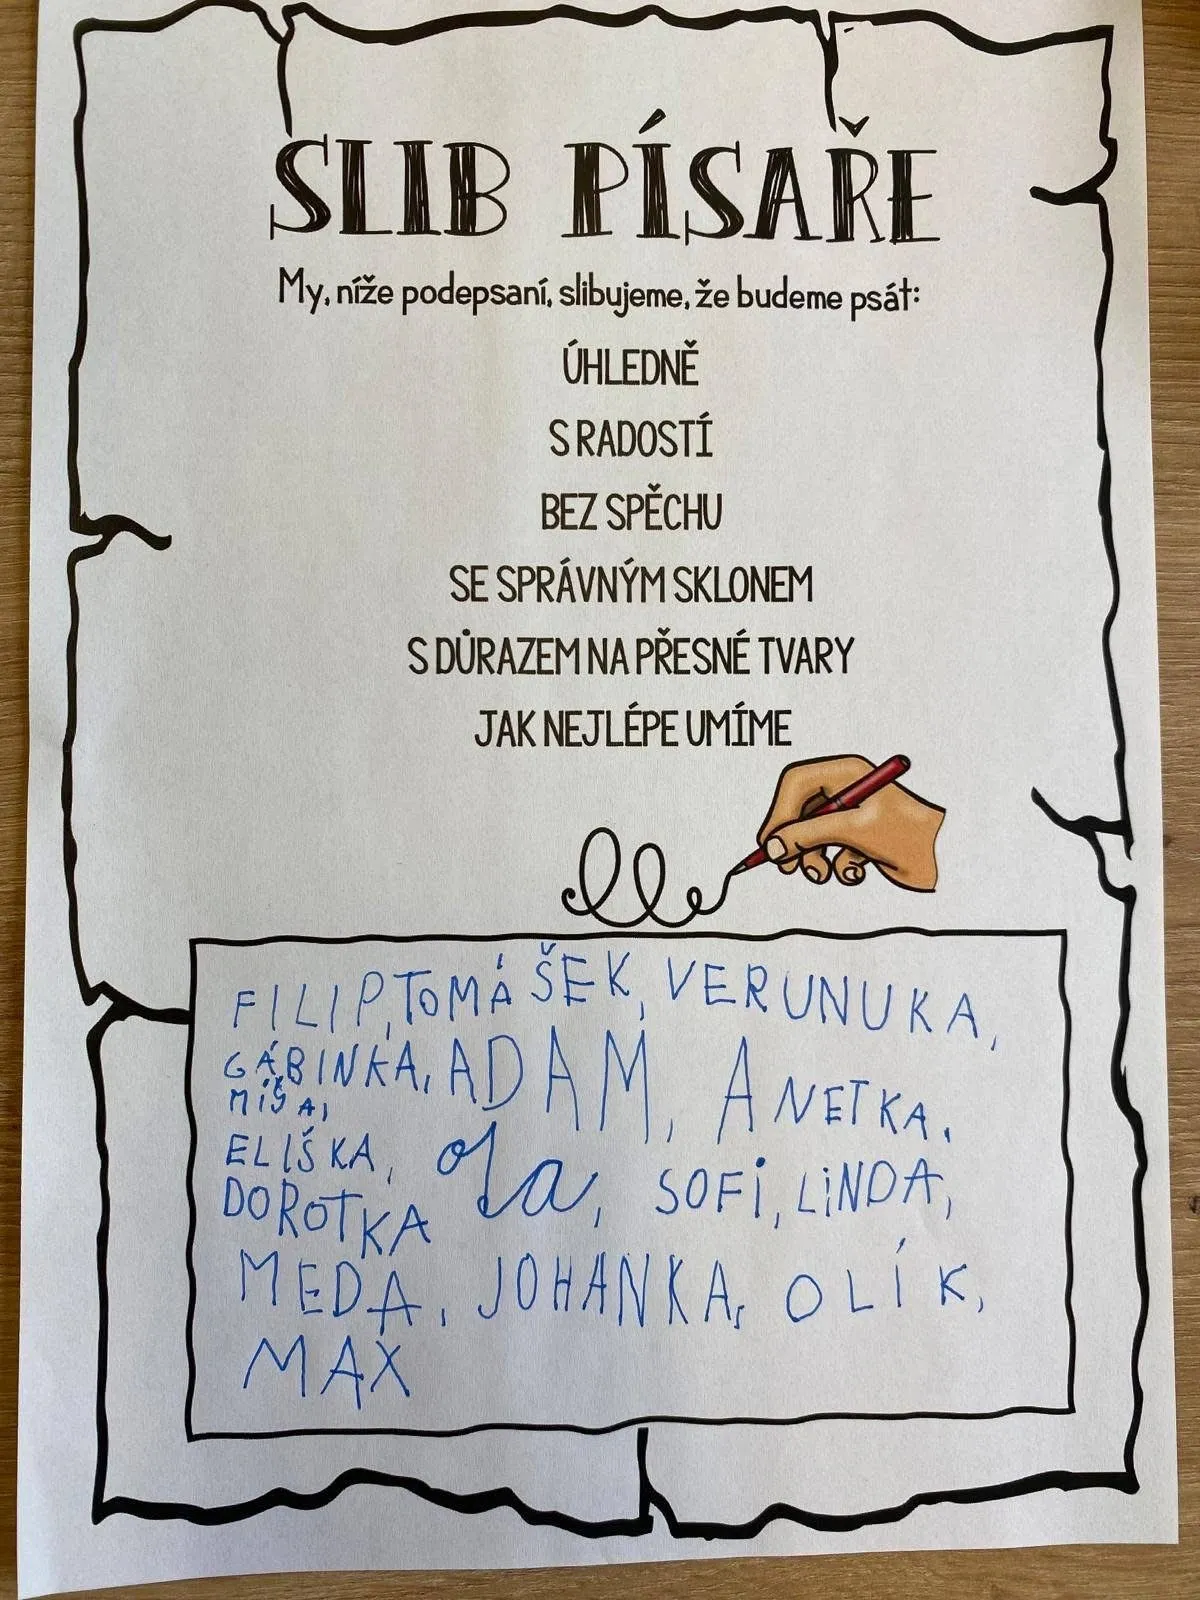 SLIB PÍSAŘE
My, níže podepsaní, slibujeme, že budeme psát:
ÚHLEDNĚ
S RADOSTÍ
BEZ SPĚCHU
SE SPRÁVNÝM SKLONEM
S DŮRAZEM NA PŘESNÉ TVARY
JAK NEJLÉPE UMÍME
FILIP, TOMÁŠEK, VERUNUKA,
GÁBINKA, ADAM, ANETKA,
MÍŠA,
ELIŠKA, Ola, SOFi, LiNDA,
DOROTKA
MEDA, JOHANKA, OLÍK,
MAX